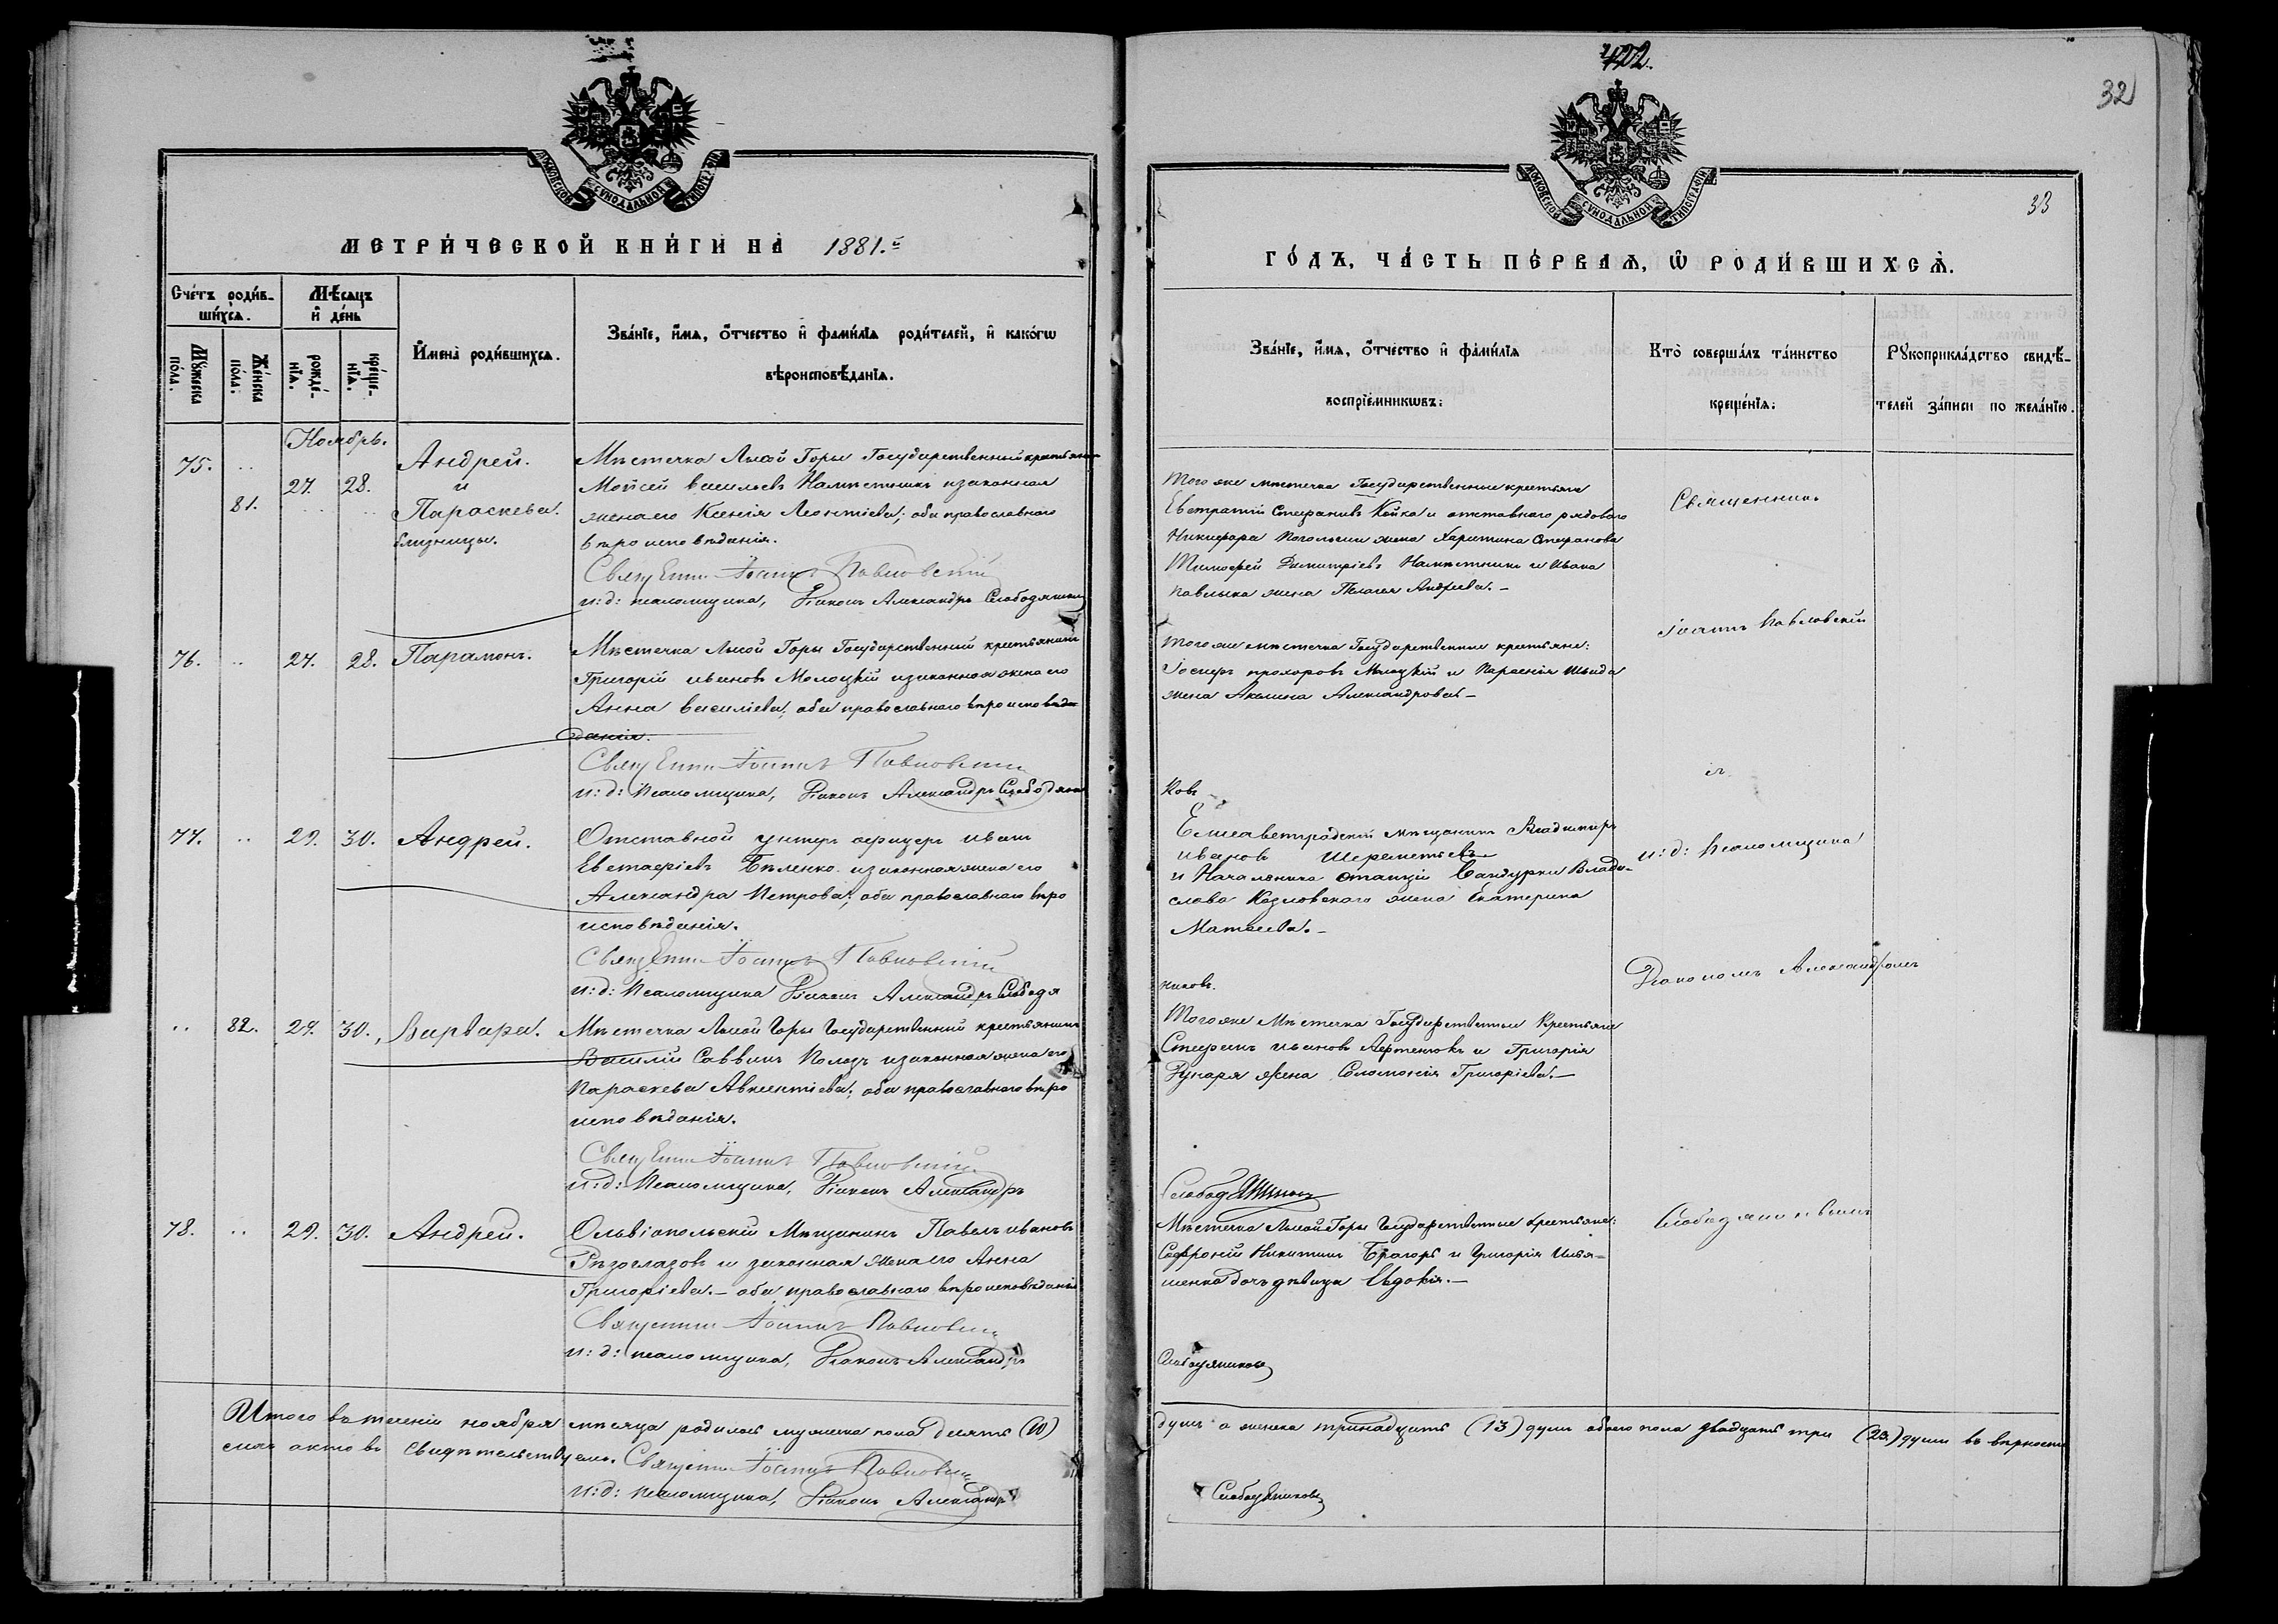 422.
32
33
МОСКОВСКОЙ СѴНОДАЛЬНОЙ ТИПОГРАФІИ
МОСКОВСКОЙ СѴНОДАЛЬНОЙ ТИПОГРАФІИ
МЕТРИ́ЧЕСКОЙ КНИ́ГИ НА̀ 1881.й
ГО́ДЪ, ЧА́СТЬ ПЕ́РВАѦ, Ѡ РОДИ́ВШИХСѦ.
Сче́тъ роди́в-
ши́хсѧ.
Мꙋ́жеска по́ла.
Же́нска по́ла.
Мѣ́сѧцъ
и҆ де́нь
рожде́-нїѧ.
креще́-нїѧ.
И҆мена̀ роди́вшихсѧ.
Зва́нїе, и҆́мѧ, ѻ҆́тчество и҆ фами́лїѧ роди́телей, и҆ како́гѡ
вѣроисповѣ́данїѧ.
Зва́нїе, и҆́мѧ, ѻ҆́тчество и҆ фами́лїѧ
воспрїе́мникѡвъ.
Кто̀ соверша́лъ та́инство
креще́нїѧ.
Рꙋкоприкла́дство свидѣ́-
телей за́писи по жела́нїю.
Ноябрь.
75. .. 27. 28. Андрей.
и
81. .. .. Параскева.
близницы.
Мѣстечка Лысой Горы Государственный крестьянинъ
Мойсей Васильевъ Намѣстникъ и законная
жена его Ксенія Леонтіева; оба православнаго
вѣроисповѣданія.
Священникъ Іоаннъ Павловскій
и: д: псаломщика, Діаконъ Александръ Слободяниковъ
Того же мѣстечка Государственные крестьяне
Евстратій Стефановъ Койка и отставнаго рядового
Никифора жена Харитина Стефанова
Тимофей Димитріевъ Намѣстникъ и Ивана
Павлыка жена Пелагія Андреева.-
Священникъ
Іоаннъ Павловскій
76. .. 27. 28. Парамонъ.
Мѣстечка Лысой Горы Государственный крестьянинъ
Григорій Ивановъ Молоцкій и законная жена его
Анна Василіева; оба православнаго вѣроисповѣ-
данія.
Священникъ Іоаннъ Павловскій
и: д: Псаломщика, Діаконъ Александръ Слободяни
Того же мѣстечка Государственные крестьяне:
Іосифъ Прохоровъ и
жена Акилина Александрова-
ковъ
съ
77. .. 29. 30. Андрей.
Отставной унтеръ офицеръ Иванъ
Евстафіевъ Бѣленко и законная жена его
Александра Петрова; оба православнаго вѣро
исповѣданія.
Священникъ Іоаннъ Павловскій
и: д: Псаломщика Діаконъ Александръ Слободя
Елисаветградскій мѣщанинъ Владимиръ
Ивановъ Шереметьевъ
и Начальника станціи Бандурки Влади-
слава Козловскаго жена Екатерина
Матвеева.-
никовъ.
и: д: Псаломщика
Діакономъ Александромъ
.. 82. 29. 30. Варвара.
Мѣстечка Лысой Горы Государственный крестьянинъ
Василій Саввинъ Полозъ и законная жена его
Параскева Авксентіева; оба православнаго вѣро
исповѣданія.
Священникъ Іоаннъ Павловскій
и: д: Псаломщика, Діаконъ Александръ
Того же Мѣстечка Государственные Крестьяне
Стефанъ Ивановъ и Григорія
жена Соломонія Григоріева.-
Слободяниковъ
78. .. 29. 30. Андрей.
Ольвіопольскій Мѣщанинъ Павелъ Ивановъ
и законная жена его Анна
Григоріева.- оба православнаго вѣроисповѣданія
Священникъ Іоаннъ Павловскій
и: д: псаломщика, Діаконъ Александръ
Мѣстечка Лысой Горы Государственные крестьяне:
Софроній Никитинъ и Григорія Илья-
шенка дочь дѣвица Евдокія.-
Слободяниковъ
Слободяниковымъ
Итого въ теченіи ноября мѣсяца родилось мужеска пола десять (10)
душъ а женска тринадцать (13) душъ обоего пола двадцать три (23) души въ вѣрности
сихъ актовъ свидѣтельствуемъ. Священникъ Іоаннъ Павловскій
и: д: псаломщика, Діаконъ Александръ
Слободяниковъ